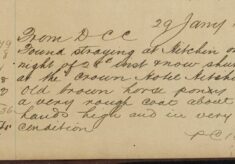 29 Jany
From D C C
Found straying at Kitchin on
night of 28th inst & now shu
at the Crown Hotel Kitchin
old brown horse pony
a very rough coat about
hands high and in very
condition
P C